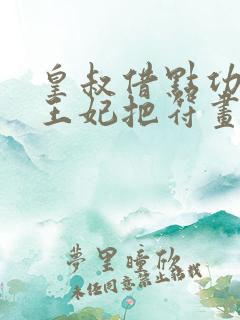 皇叔借點功
王妃把符畫
夢里曈欣
未经同意禁止转载